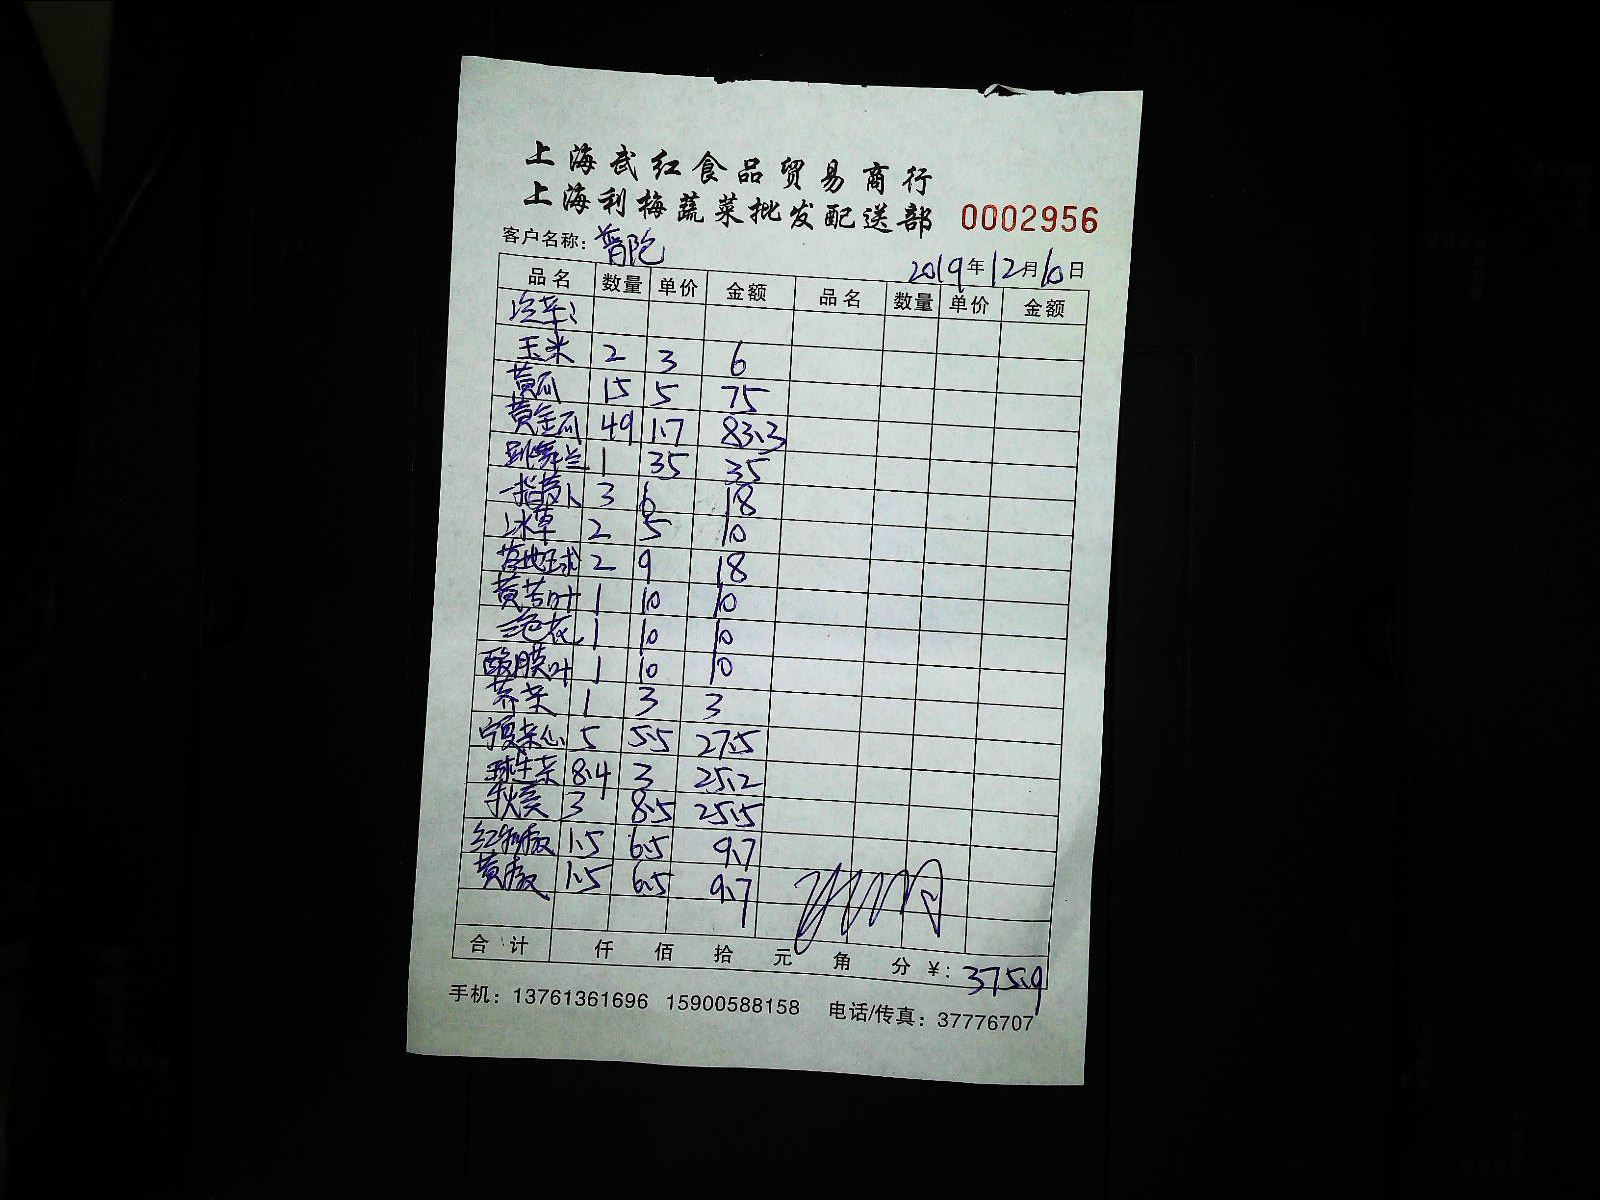 上海武红食品贸易商行
上海利梅蔬菜批发配送部 0002956
客户名称：普陀 2019年12月10日
品名 数量 单价 金额 品名 数量 单价 金额
冷菜：
玉米 2 3 6
黄瓜 15 5 75
黄金瓜 49 1.7 83.3
跳舞兰 1 35 35
3 6 18
冰草 2 5 10
2 9 18
黄芒叶 1 10 10
1 10 10
酸膜叶 1 10 10
荠菜 1 3 3
宁夏菜心 5 5.5 27.5
球生菜 8.4 3 25.2
秋葵 3 8.5 25.5
红椒 1.5 6.5 9.7
黄椒 1.5 6.5 9.7
合计 仟 佰 拾 元 角 分 ¥：375.9
手机：13761361696 15900588158 电话/传真：37776707